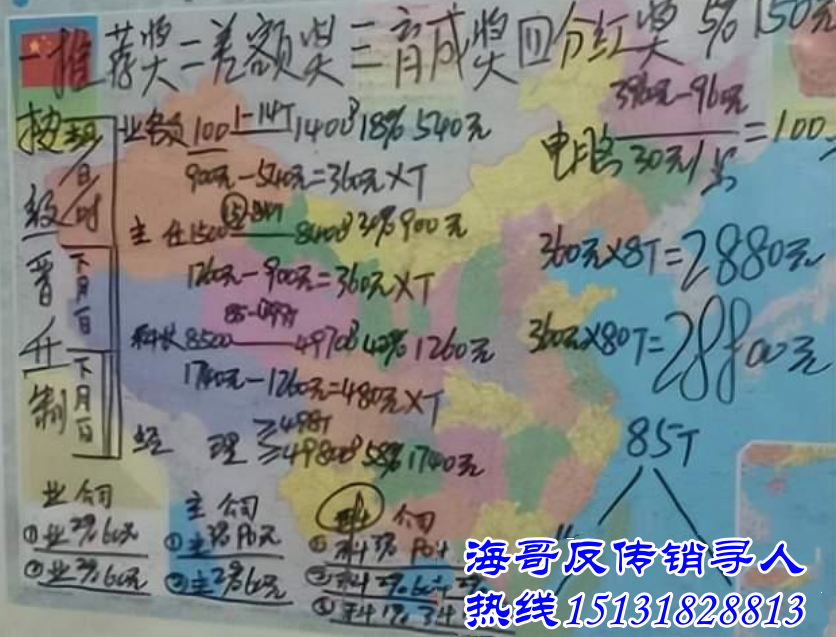 一推荐奖二差额奖三育成奖四分红奖 5% 150元
业务员 100 1-14T 1400 18% 540元
900元-540元=360元×T
主任 1500 8400 30% 900元
1260元-900元=360元×T
科长 8500 4970 42% 1260元
1740元-1260元=480元×T
经理 ≥498T
≥49800 58% 1740元
级晋升制
下月一日
下月一日
电脑 30元/ =100
360元×8T=2880元
360元×80T=28800元
85T
业 公司
①业2%60元
②业2%60元
主 公司
①主3%90元
②主2%60元
科 公司
①科3%90+
②科2%60+2%
③科1%
海哥反传销寻人
热线15131828813